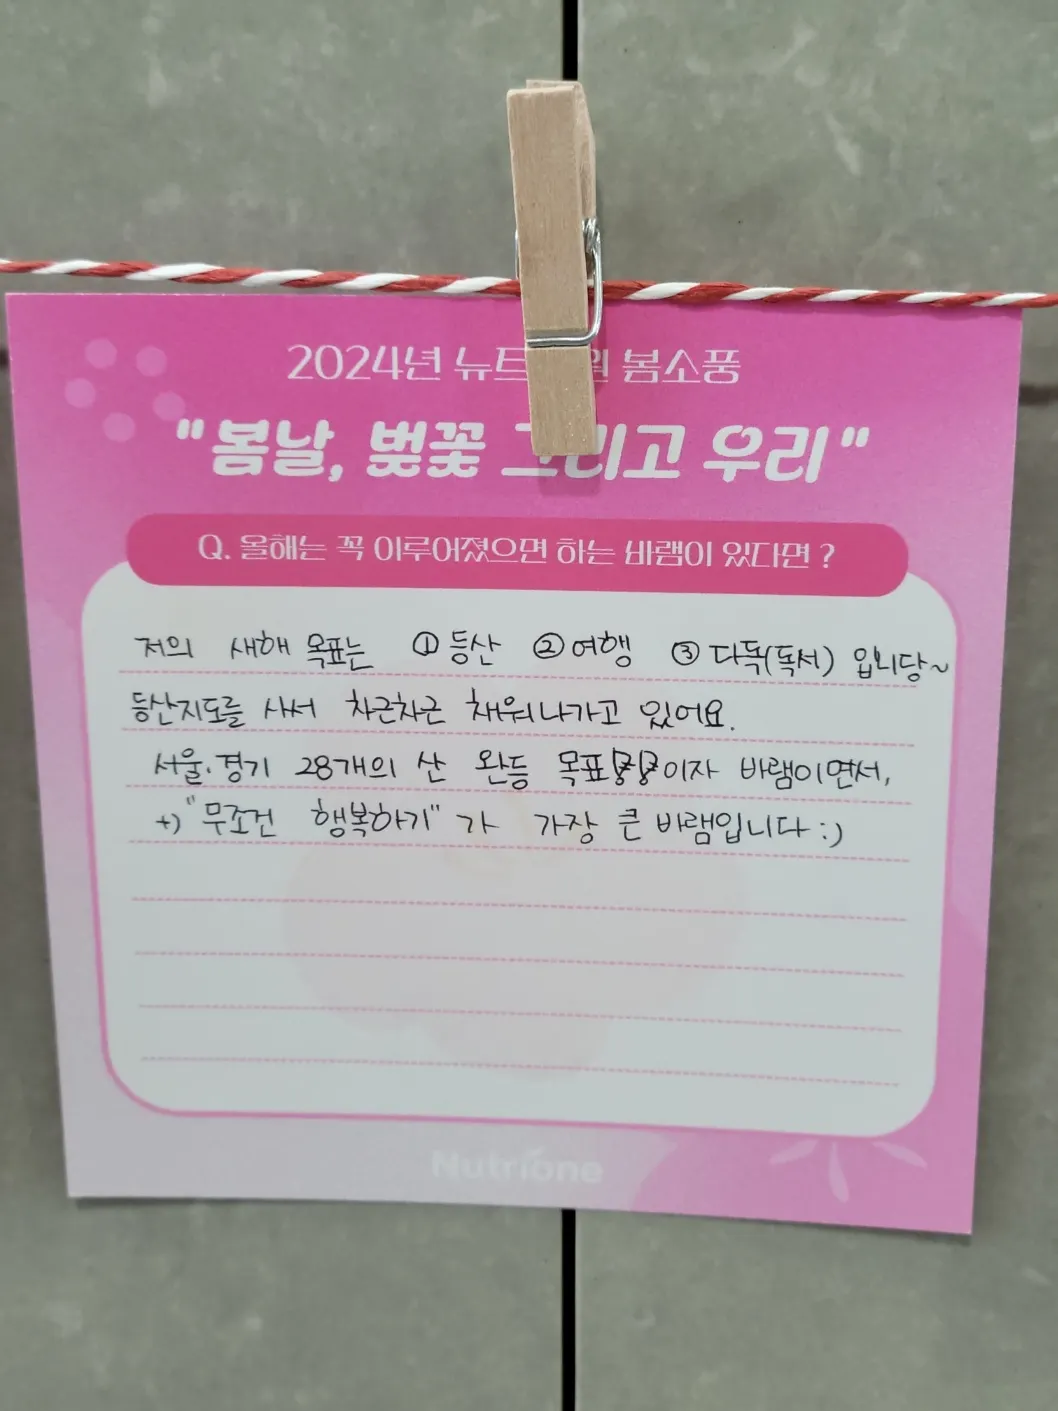 2024년 뉴트 봄소풍
"봄날, 벚꽃 그리고 우리"
Q. 올해는 꼭 이루어졌으면 하는 바램이 있다면 ?
저의 새해 목표는 ① 등산 ② 여행 ③ 다독(독서) 입니당~
등산지도를 사서 차근차근 채워나가고 있어요.
서울·경기 28개의 산 완등 목표이자 바램이면서,
+) "무조건 행복하기" 가 가장 큰 바램입니다 :)
Nutrione